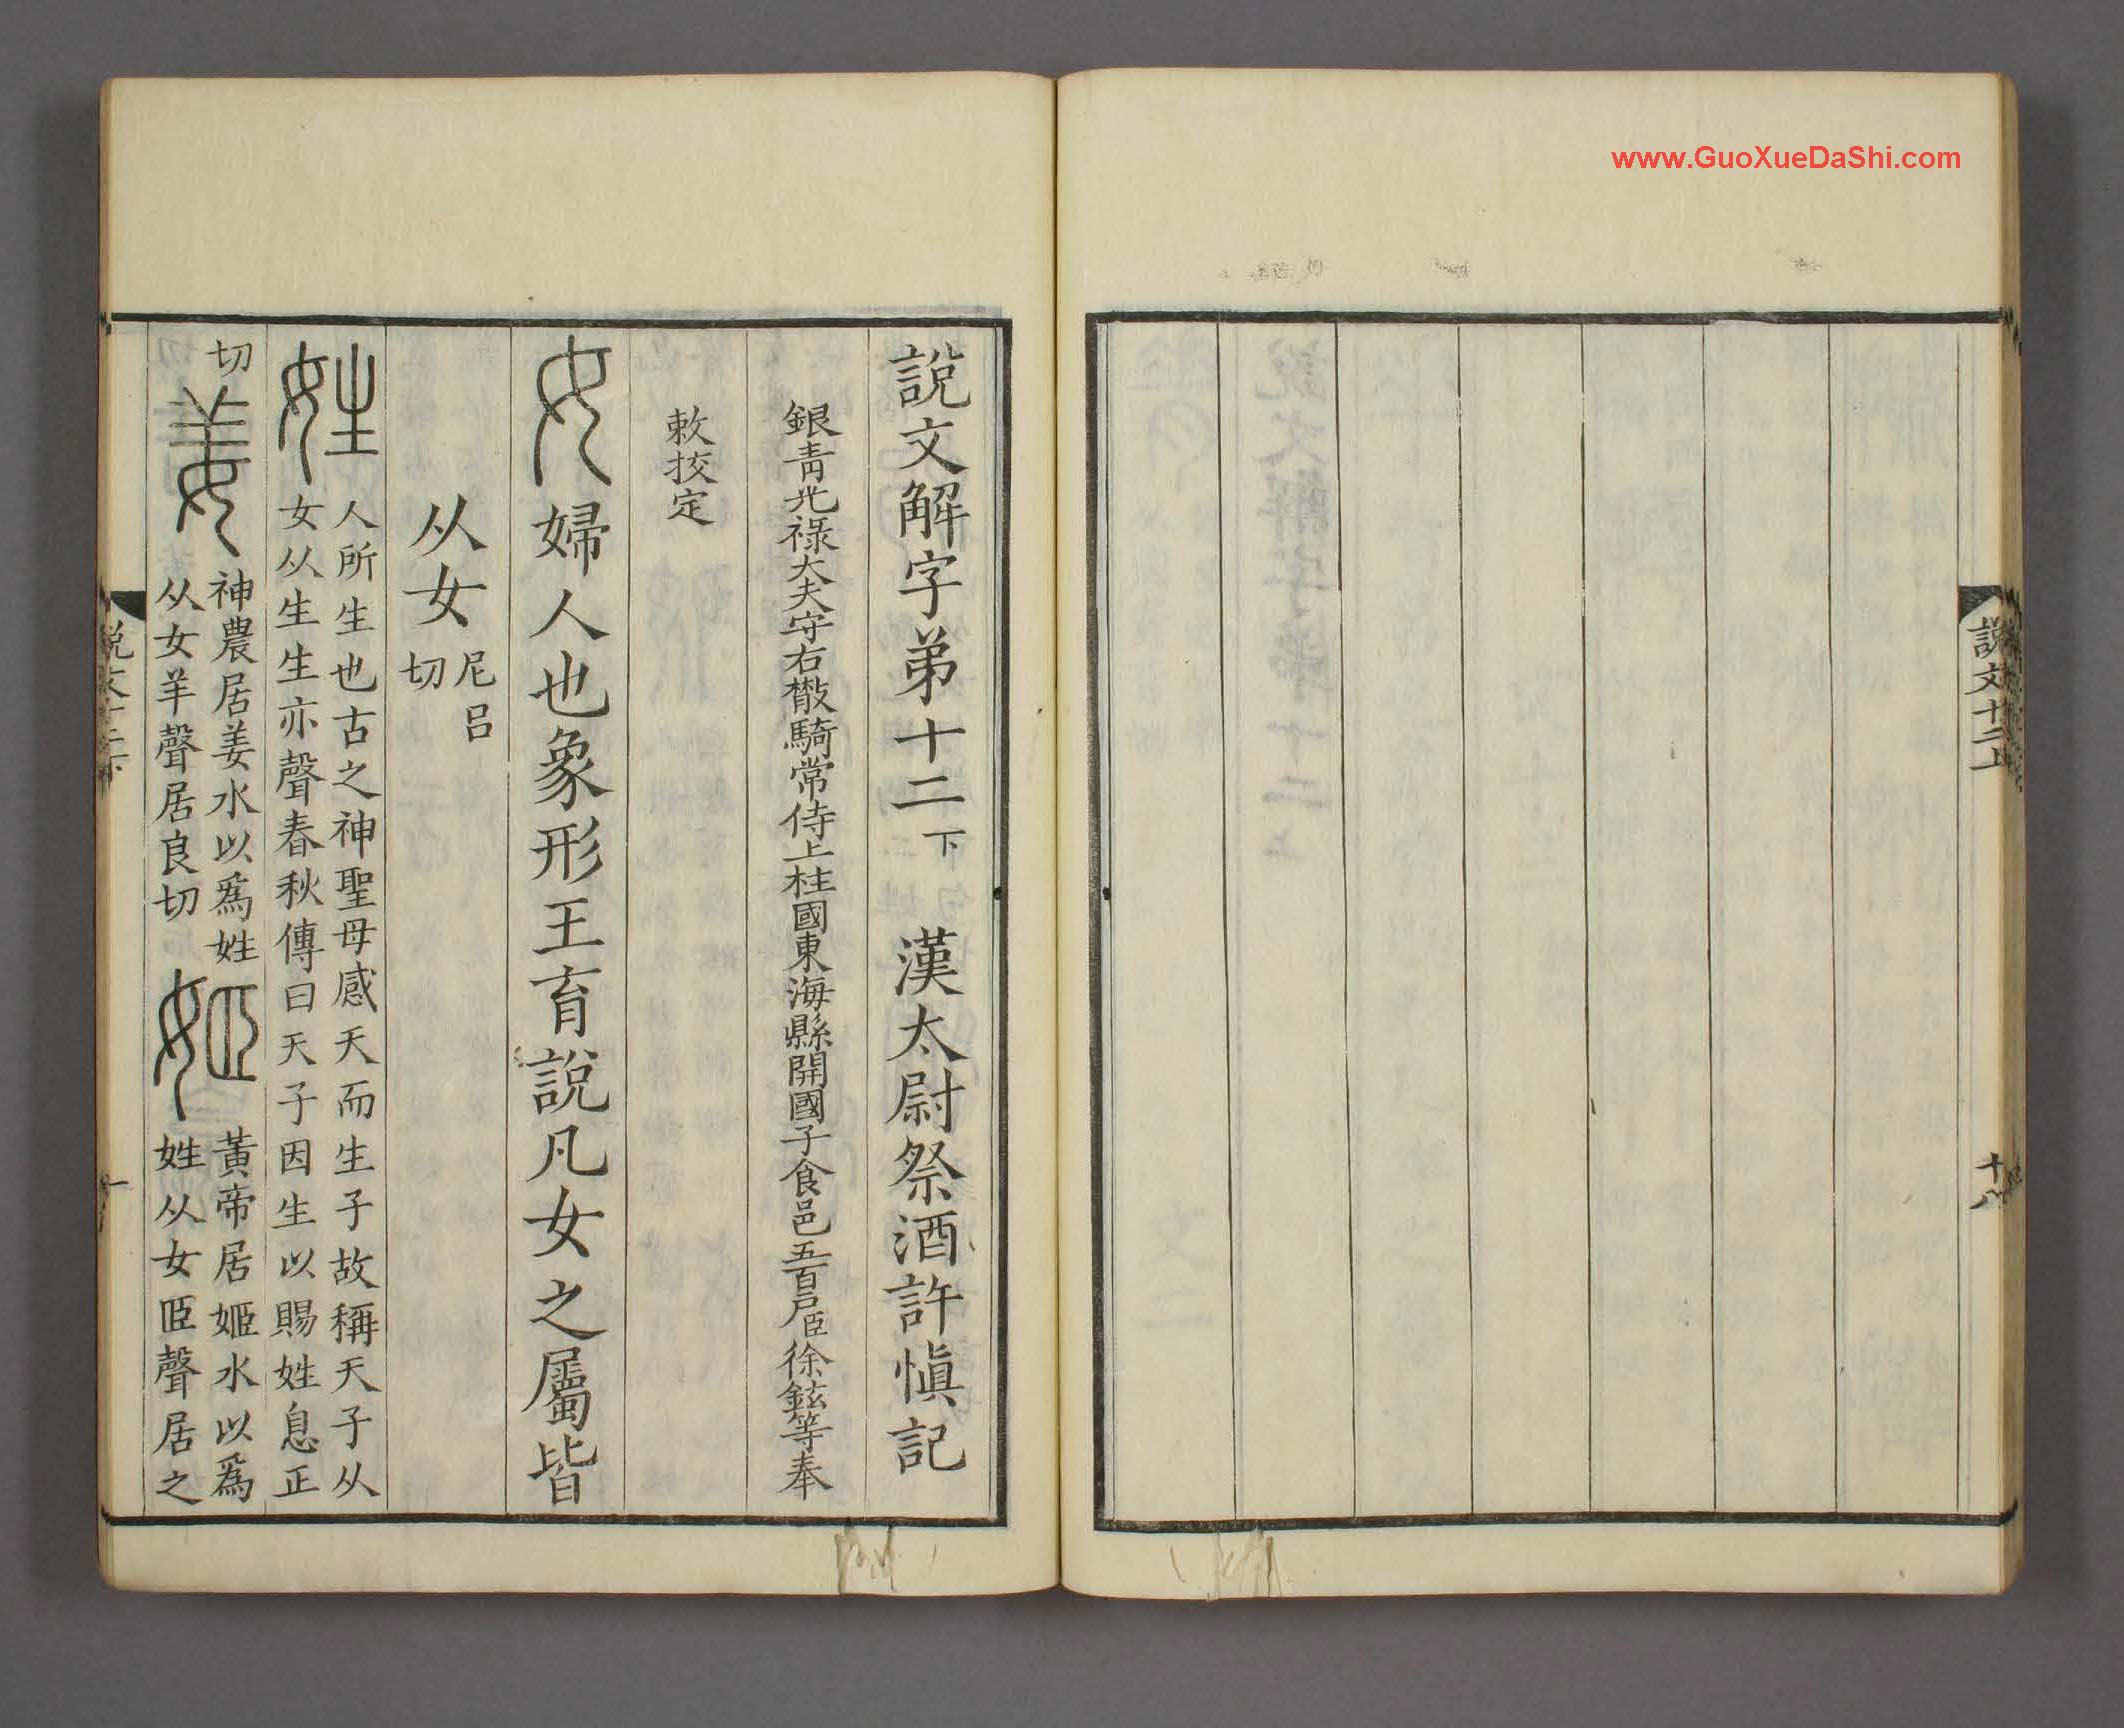 www.GuoXueDaShi.com
說文十二上
十八
說文解字弟十二下 漢太尉祭酒許慎記
銀青光祿大夫守右散騎常侍上柱國東海縣開國子食邑五百戶臣徐鉉等奉
敕挍定
女 婦人也象形王育說凡女之屬皆
从女 尼呂切
姓 人所生也古之神聖母感天而生子故稱天子从
女从生生亦聲春秋傳曰天子因生以賜姓息正
切 姜 神農居姜水以爲姓
从女羊聲居良切
姬 黃帝居姬水以爲
姓从女𦣞聲居之
說文十二下
一